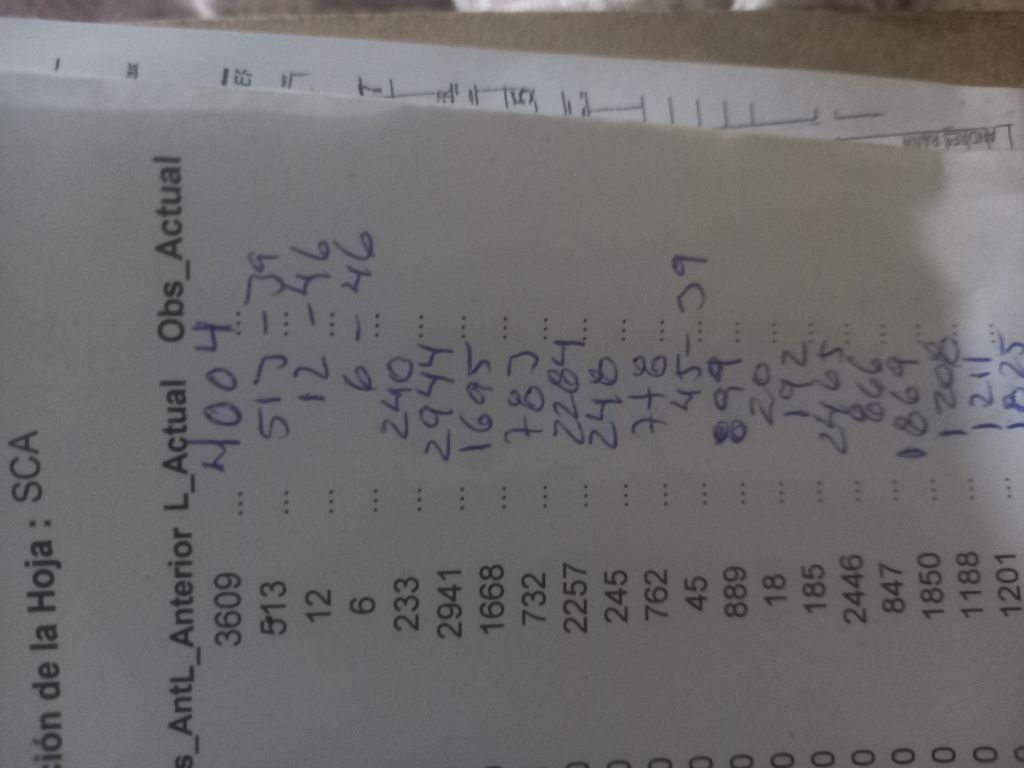 ción de la Hoja : SCA
s_AntL_Anterior L_Actual Obs_Actual
3609 ... 4004 ...
513 ... 513 ... - 39
12 ... 12 ... - 46
6 ... 6 ... - 46
0 233 ... 240 ...
0 2941 ... 2944 ...
0 1668 ... 1695 ...
0 732 ... 783 ...
0 2257 ... 2284 ...
0 245 ... 248 ...
0 762 ... 778 ...
0 45 ... 45 - ... 39
0 889 ... 899 ...
0 18 ... 20 ...
0 185 ... 192 ...
0 2446 ... 2465 ...
0 847 ... 866 ...
0 1850 ... 1869 ...
0 1188 ... 1208 ...
0 1201 ... 1211 ...
1825